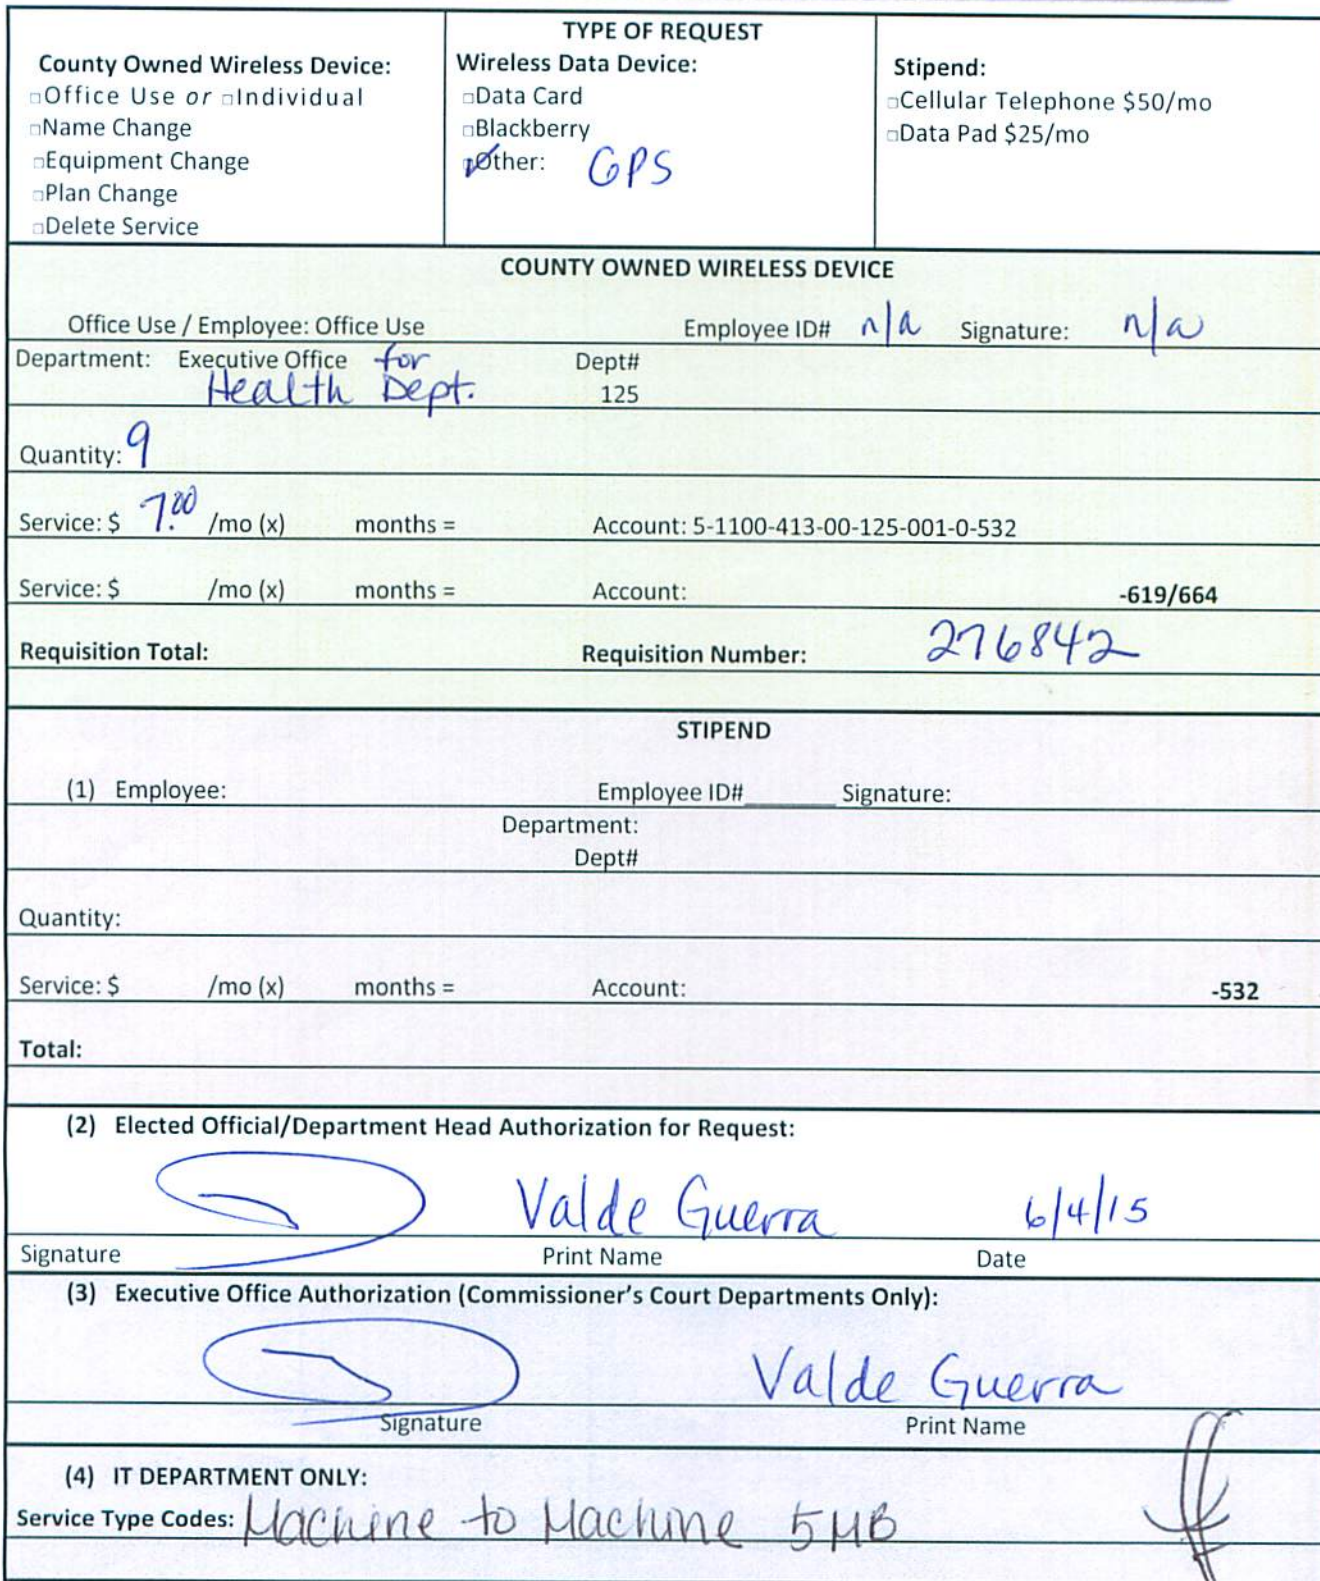 TYPE OF REQUEST
County Owned Wireless Device:
□Office Use or □Individual
□Name Change
□Equipment Change
□Plan Change
□Delete Service
Wireless Data Device:
□Data Card
□Blackberry
☑Other: GPS
Stipend:
□Cellular Telephone $50/mo
□Data Pad $25/mo
COUNTY OWNED WIRELESS DEVICE
Office Use / Employee: Office Use Employee ID# n/a Signature: n/a
Department: Executive Office for Dept#
Health Dept. 125
Quantity: 9
Service: $ 7.00 /mo (x) months = Account: 5-1100-413-00-125-001-0-532
Service: $ /mo (x) months = Account: -619/664
Requisition Total: Requisition Number: 276842
STIPEND
(1) Employee: Employee ID# Signature:
Department:
Dept#
Quantity:
Service: $ /mo (x) months = Account: -532
Total:
(2) Elected Official/Department Head Authorization for Request:
Valde Guerra 6/4/15
Signature Print Name Date
(3) Executive Office Authorization (Commissioner's Court Departments Only):
Valde Guerra
Signature Print Name
(4) IT DEPARTMENT ONLY:
Service Type Codes: Machine to Machine 5MB